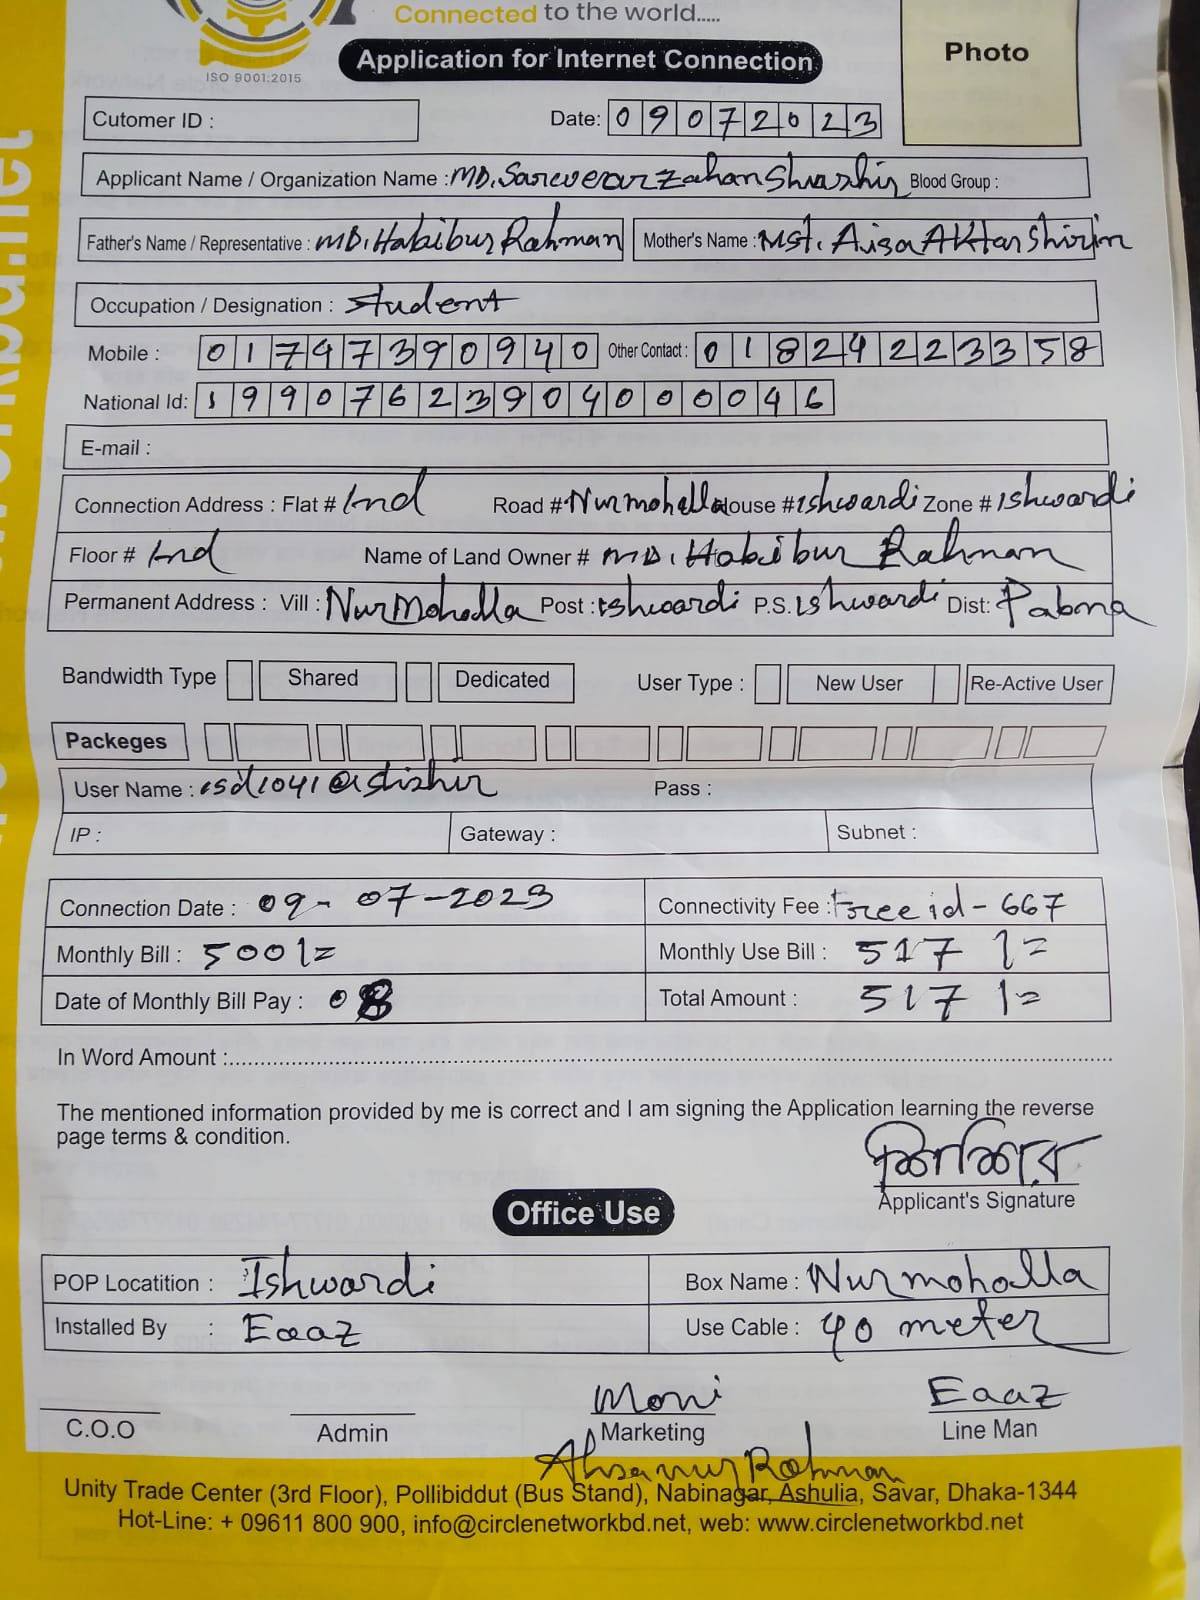 Connected to the world.....
ISO 9001:2015
Application for Internet Connection
Photo
Cutomer ID :
Date: 09072023
Applicant Name / Organization Name : MD. Sarwerar Zahan Blood Group :
Father's Name / Representative : MD. Habibur Rahman Mother's Name : Mst. Aisa AKtar Shirin
Occupation / Designation : Student
Mobile : 01747390940 Other Contact : 01824223358
National Id: 19907623904000046
E-mail :
Connection Address : Flat # Ind Road # Nurmohalla House # Ishwardi Zone # Ishwardi
Floor # Ind Name of Land Owner # MD. Habibur Rahman
Permanent Address : Vill : NurMohalla Post : Ishwardi P.S. Ishwardi Dist: Pabna
Bandwidth Type Shared Dedicated User Type : New User Re-Active User
Packeges
User Name : Pass :
IP : Gateway : Subnet :
Connection Date : 09-07-2023 Connectivity Fee : Free id - 667
Monthly Bill : 500/= Monthly Use Bill : 517/=
Date of Monthly Bill Pay : 08 Total Amount : 517/=
In Word Amount :
The mentioned information provided by me is correct and I am signing the Application learning the reverse
page terms & condition.
Applicant's Signature
Office Use
POP Locatition : Ishwardi Box Name : Nurmoholla
Installed By : Eaaz Use Cable : 40 meter
Moni Eaaz
C.O.O Admin Marketing Line Man
Ahsanur Rahman
Unity Trade Center (3rd Floor), Pollibiddut (Bus Stand), Nabinagar, Ashulia, Savar, Dhaka-1344
Hot-Line: + 09611 800 900, info@circlenetworkbd.net, web: www.circlenetworkbd.net